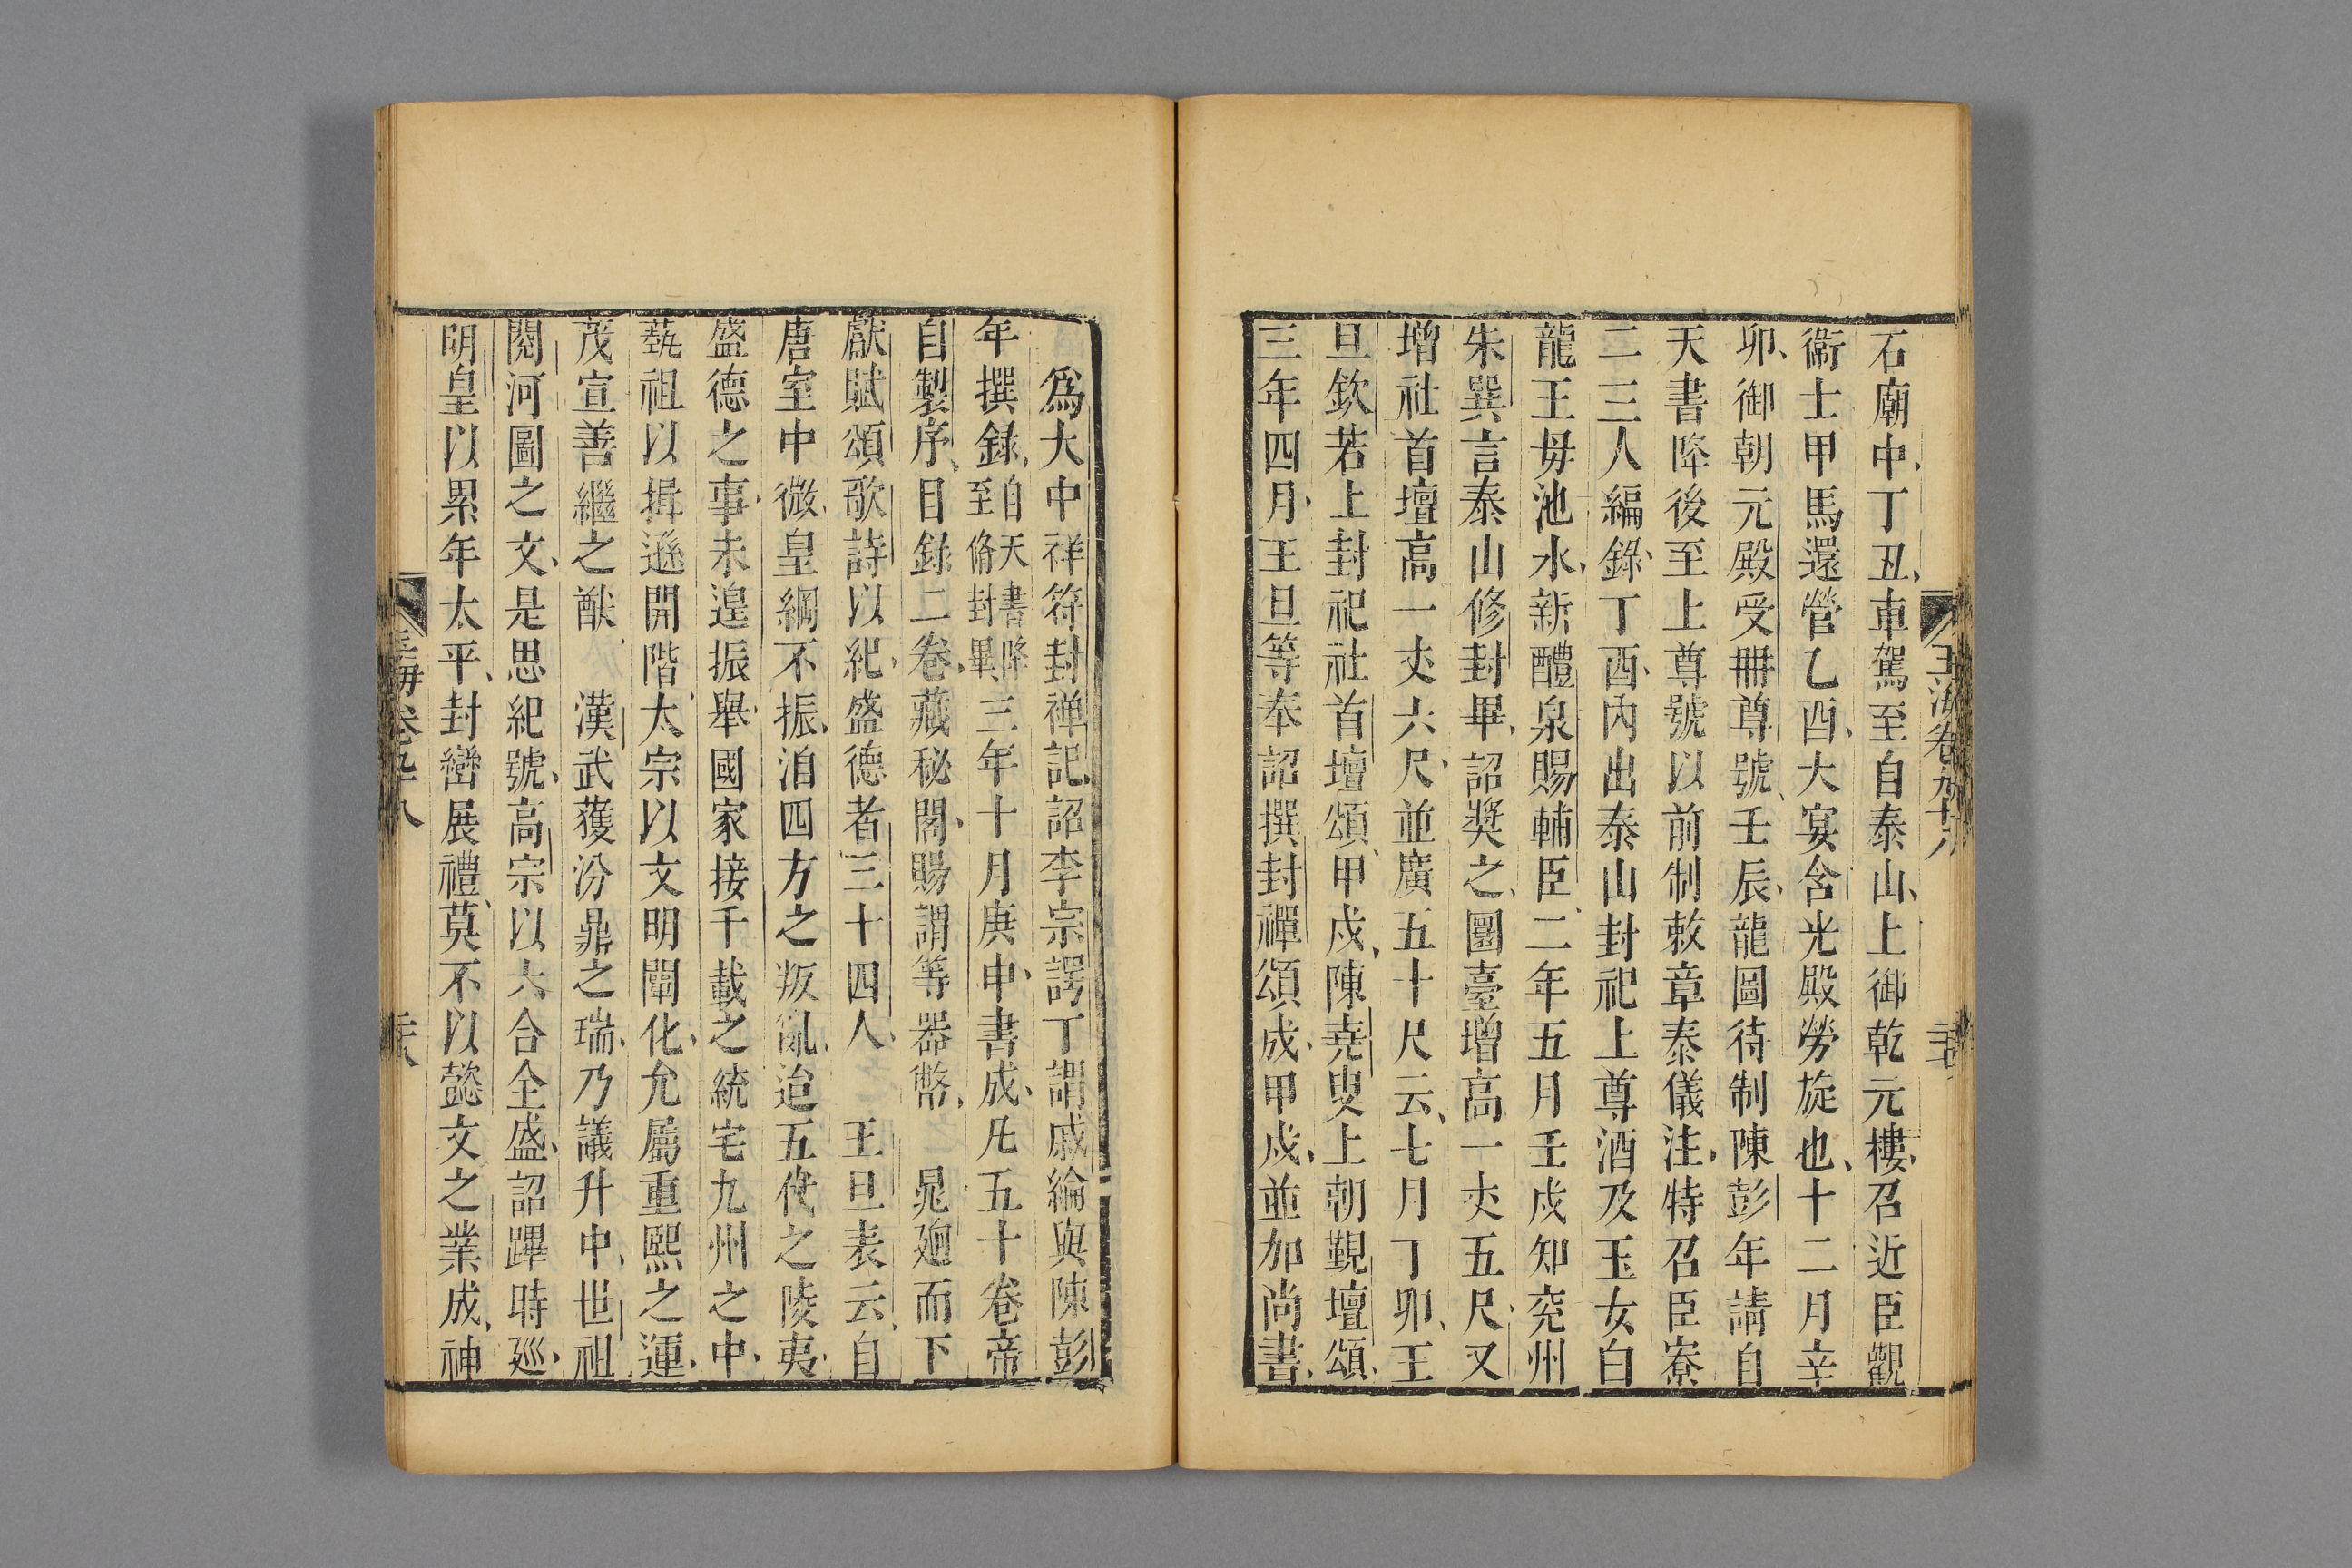 石廟中丁丑車駕至自泰山上御乾元樓召近臣觀
衞士甲馬還營乙酉大宴含光殿勞旋也十二月辛
卯御朝元殿受冊尊號壬辰龍圖待制陳彭年請自
天書降後至上尊號以前制敕章奏儀注特召臣寮
二三人編錄丁酉內出泰山封祀上尊酒及玉女白
龍王母池水新醴泉賜輔臣二年五月壬戌知兖州
朱巽言泰山修封畢詔奬之圜臺增高一丈五尺又
增社首壇高一丈六尺並廣五十尺云七月丁卯王
旦欽若上封祀社首壇頌甲戌陳堯叟上朝覲壇頌
三年四月王旦等奉詔撰封禪頌成甲戌並加尚書
爲大中祥符封禅記詔李宗諤丁謂戚綸與陳彭
年撰錄自天書降至脩封畢三年十月庚申書成凡五十卷帝
自製序目錄二卷藏秘閣賜謂等器幣　晁廻而下
獻賦頌歌詩以紀盛德者三十四人　王旦表云自
唐室中微皇綱不振洎四方之叛亂迨五代之陵夷
盛德之事未遑振舉國家接千載之統宅九州之中
藝祖以揖遜開階太宗以文明闡化允屬重熙之運
茂宣善繼之猷　漢武獲汾鼎之瑞乃議升中世祖
閱河圖之文是思紀號高宗以六合全盛詔蹕時廵
明皇以累年太平封巒展禮莫不以懿文之業成神
玉海卷九十八